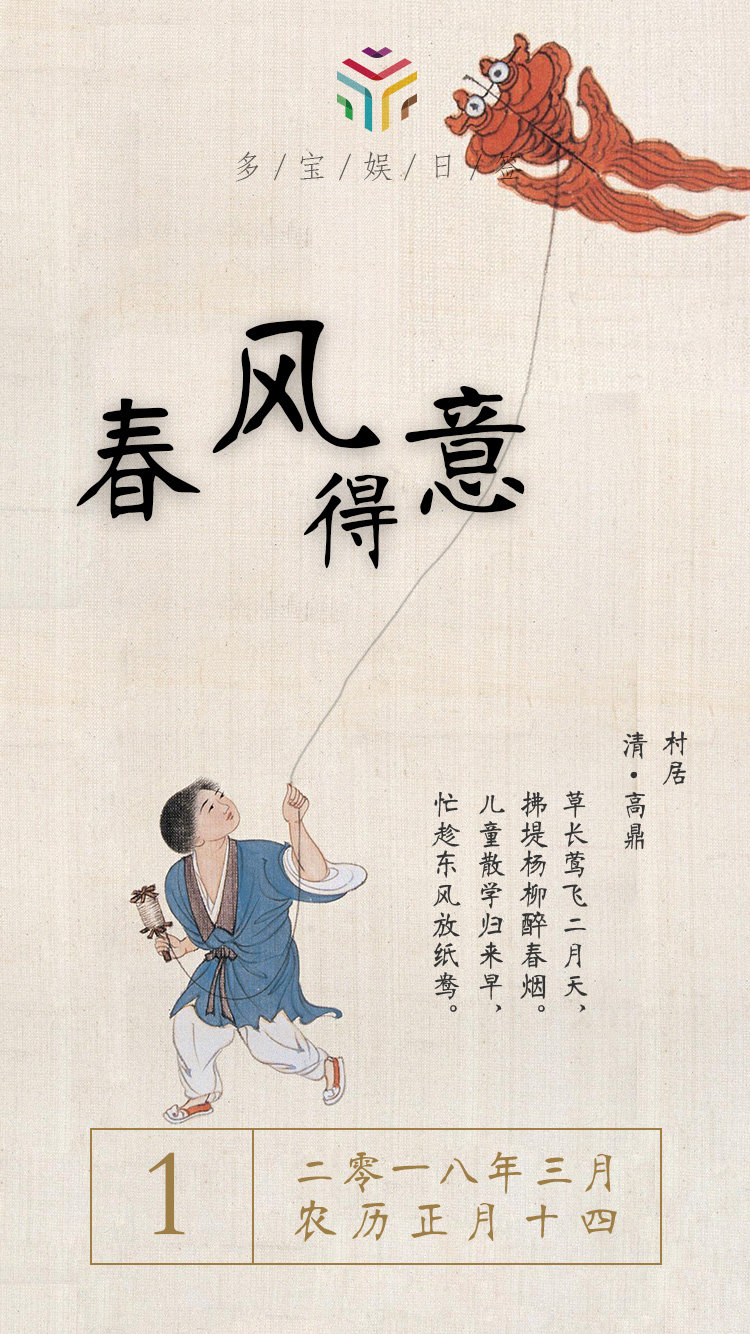 多/宝/娱/日/签
春风得意
村居
清·高鼎
草长莺飞二月天，
拂堤杨柳醉春烟。
儿童散学归来早，
忙趁东风放纸鸢。
1
二零一八年三月
农历正月十四